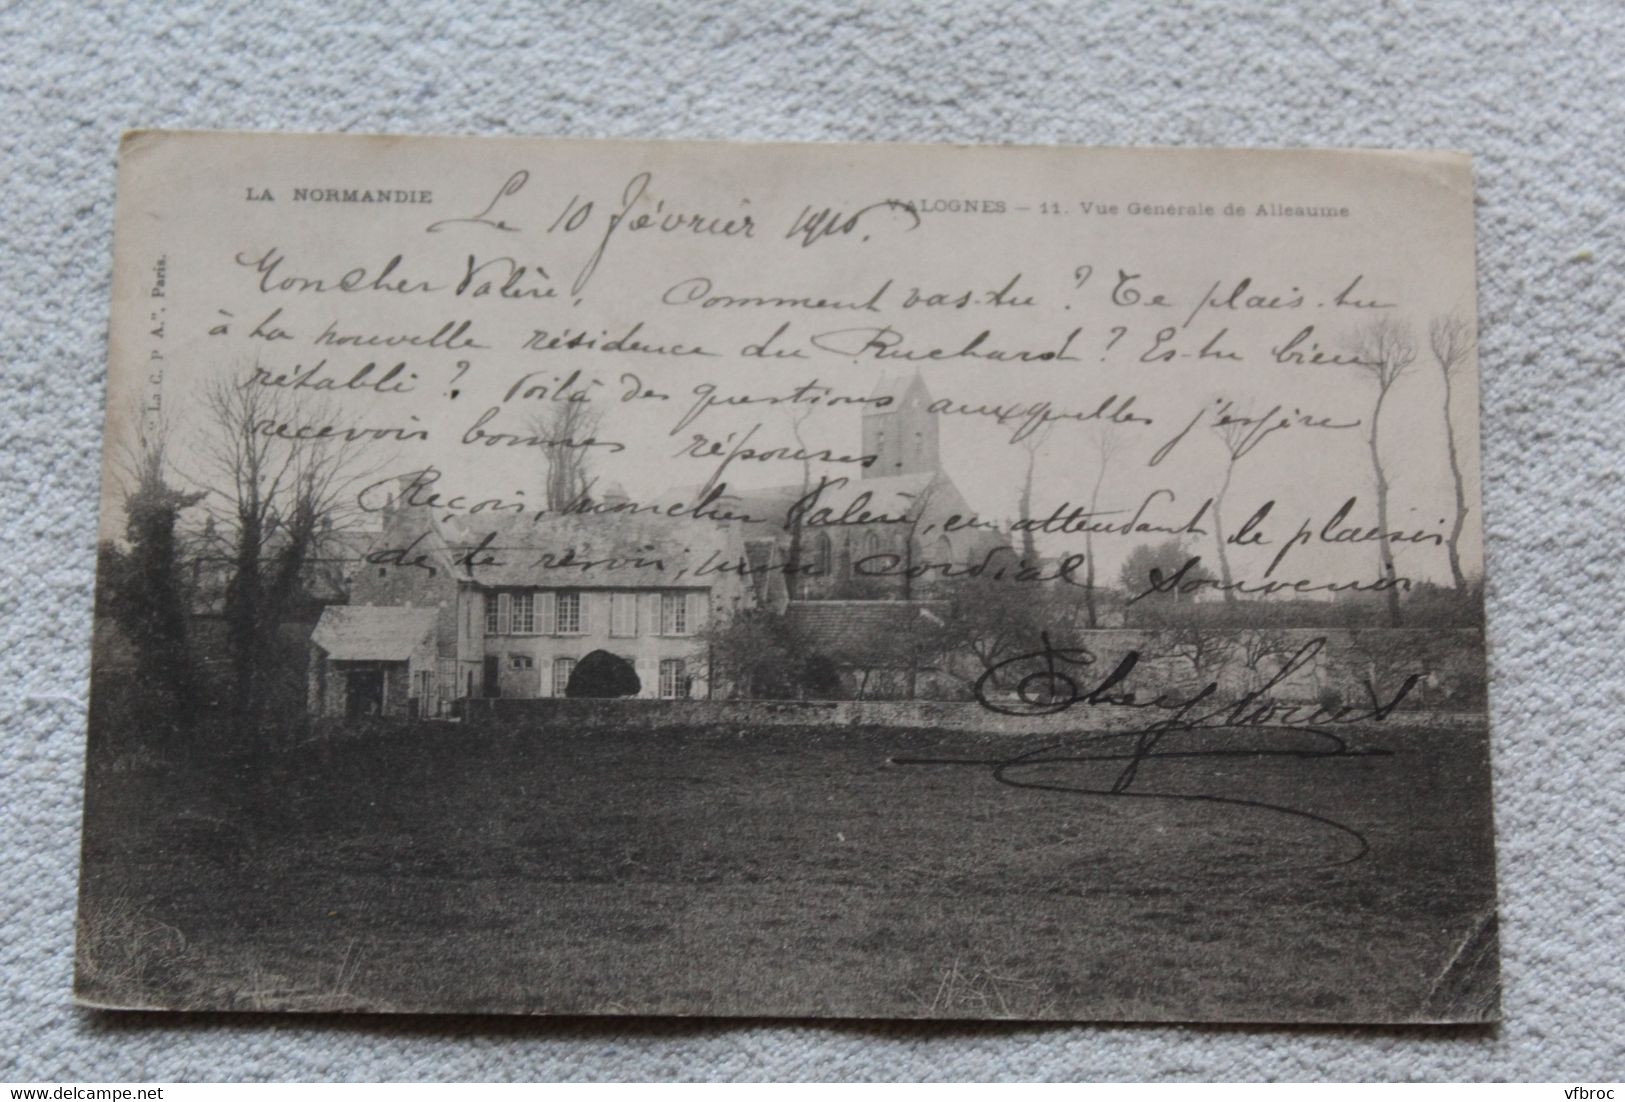 LA NORMANDIE
VALOGNES — 11. Vue Générale de Alleaume
"La C. P. A.", Paris.
Le 10 février 1916.
Mon cher Valère, Comment vas-tu ? Te plais-tu
à ta nouvelle résidence du Ruchard ? Es-tu bien
rétabli ? Voilà des questions auxquelles j'espère
recevoir bonnes réponses.
Reçois, mon cher Valère, en attendant le plaisir
de te revoir, mon cordial souvenir
delcampe.net
vfbroc